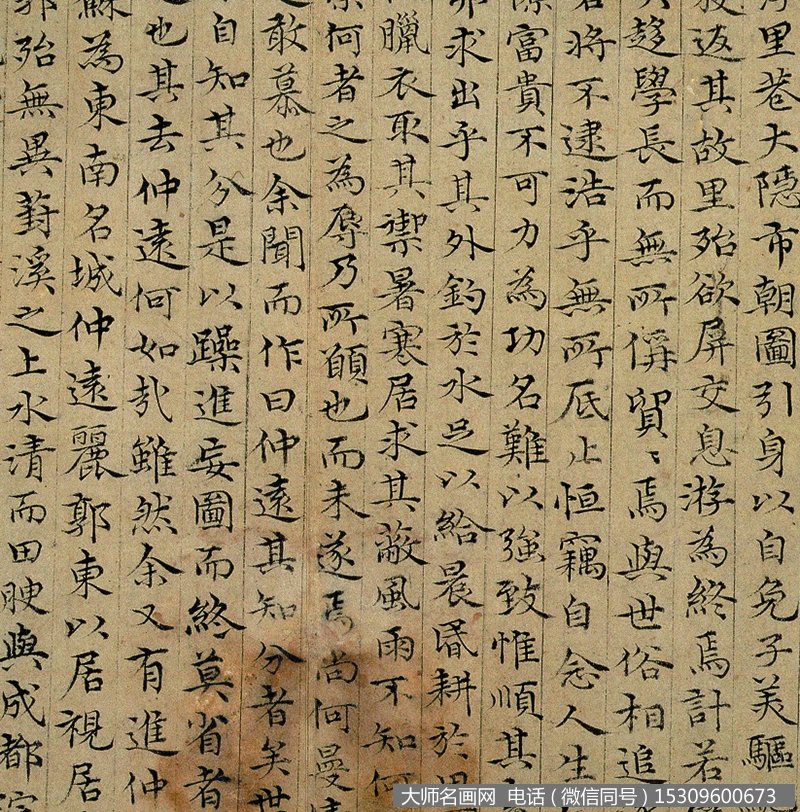 里巷大隱市朝圖引身以自免子美驅
返其故里殆欲屏交息游為終焉計若
趍學長而無所偁貿〻焉與世俗相追
將不逮浩乎無所底止恒竊自念人生
富貴不可力為功名難以強致惟順其
求出乎其外釣於水足以給晨昏耕於田
臘衣取其禦暑寒居求其蔽風雨不知何
何者之為辱乃所顧也而未遂焉尚何曼
敢慕也余聞而作曰仲遠其知分者矣世
自知其分是以躁進妄圖而終莫省者
也其去仲遠何如哉雖然余又有進仲
蘇為東南名城仲遠麗郭東以居視居
郭殆無異葑溪之上水清而田腴與成都
大师名画网 电话（微信同号）15309600673